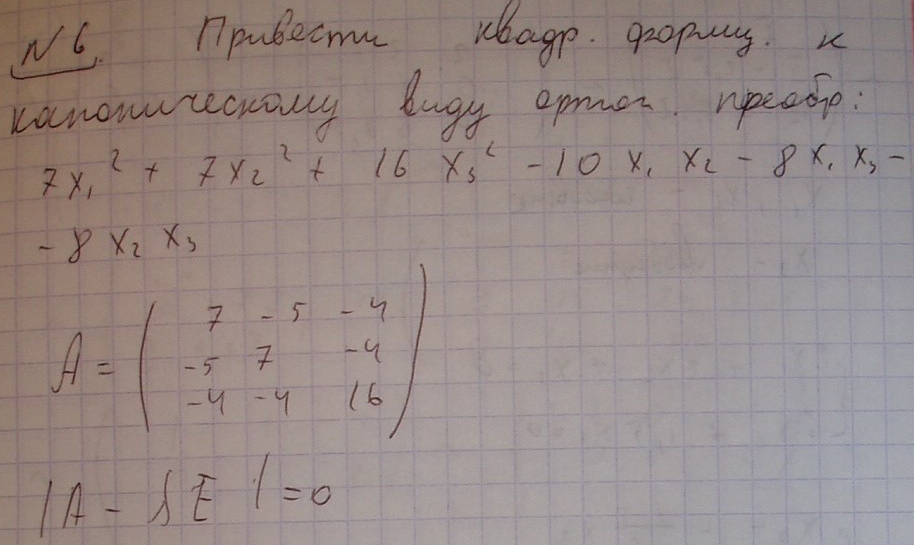 N 6. Привести квадр. форму. к
каноническому виду ортог. преобр:
7x₁² + 7x₂² + 16 x₃² - 10 x₁ x₂ - 8x₁ x₃ -
- 8 x₂ x₃
A = ( 7 -5 -4
-5 7 -4
-4 -4 16 )
|A - λE| = 0